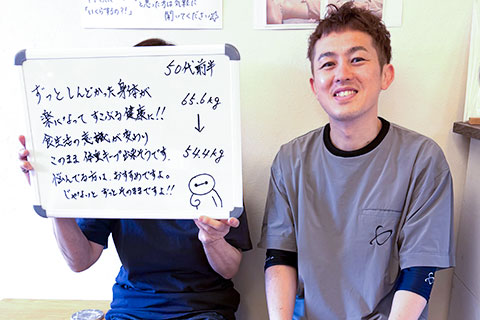 「いくらするの?!」
聞いてください
50代前半
ずっとしんどかった身体が
楽になって すこぶる健康に!!
食生活の意識が変わり
このまま 体重キープ出来そうです.
悩んでる方は、おすすめですよ。
じゃないと ずっとそのままですよ!!
65.6kg
↓
54.4kg